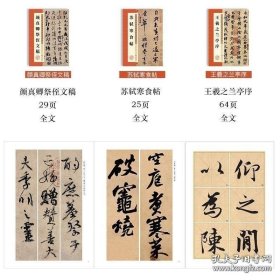 颜真卿祭侄文稿
苏轼寒食帖
王羲之兰亭序
颜真卿祭侄文稿
29页
全文
苏轼寒食帖
25页
全文
王羲之兰亭序
64页
全文
酌庶羞祭于
亡姪贈贊善大
夫季明之靈
空庖煮寒菜
破竈燒
仰之間
以為陳